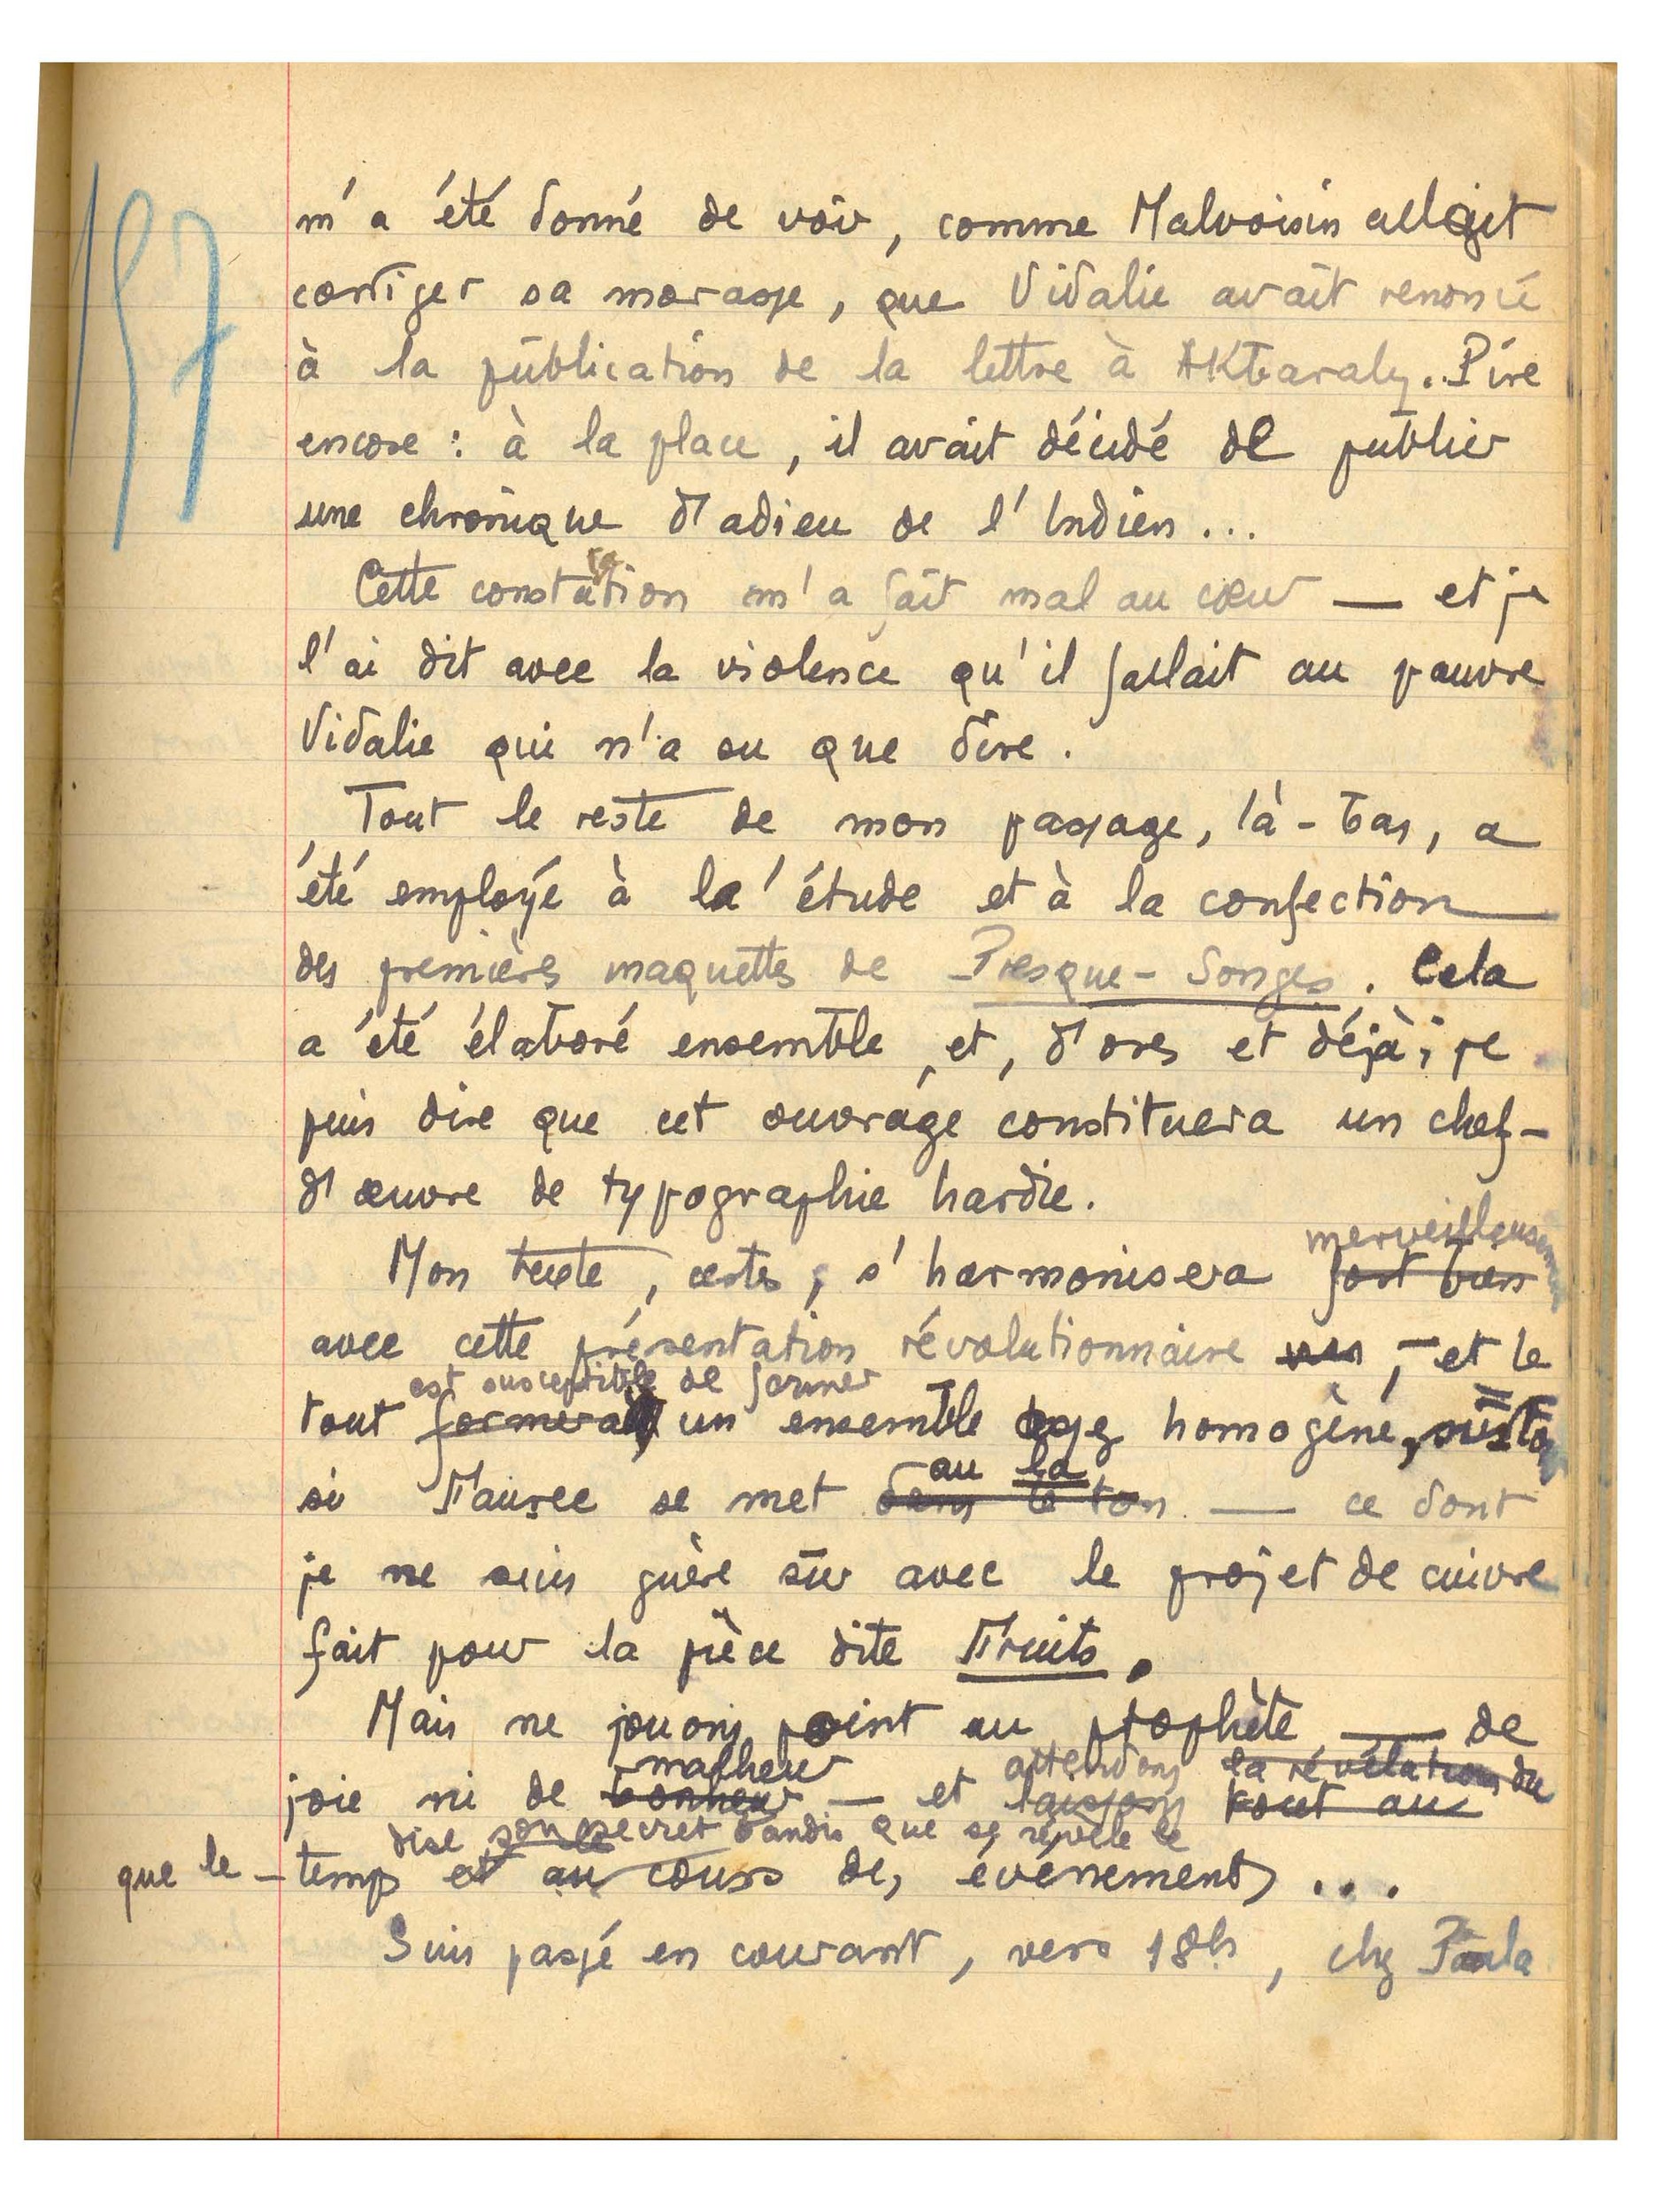 157
m'a été donné de voir, comme Malvoisin allait
corriger sa morasse, que Vidalie avait renoncé
à la publication de la lettre à Aktaraly. Pire
encore : à la place, il avait décidé de publier
une chronique d'adieu de l'Indien...
ta
Cette constation m'a fait mal au cœur — et je
l'ai dit avec la violence qu'il fallait au pauvre
Vidalie qui n'a su que dire.
Tout le reste de mon passage, là-bas, a
été employé à la étude et à la confection
des premières maquettes de Presque-Songes. Cela
a été élaboré ensemble, et, d'ores et déjà, je
puis dire que cet ouvrage constituera un chef-
d'œuvre de typographie hardie.
merveilleusement
Mon texte, certes, s'harmonisera fort bien
avec cette présentation révolutionnaire , — et le
est susceptible de former
tout formera un ensemble assez homogène,
au la
si Faurec se met dans le ton — ce dont
je ne suis guère sûr avec le projet de cuivre
fait pour la pièce dite Fruits.
Mais ne jouons point au prophète — de
malheur attendons la révélation du
joie ni de bonheur — et laissons tout au
dise son secret tandis que se révèle le
que le temps et au cours des événements...
Suis passé en courant, vers 18h, chez Paula